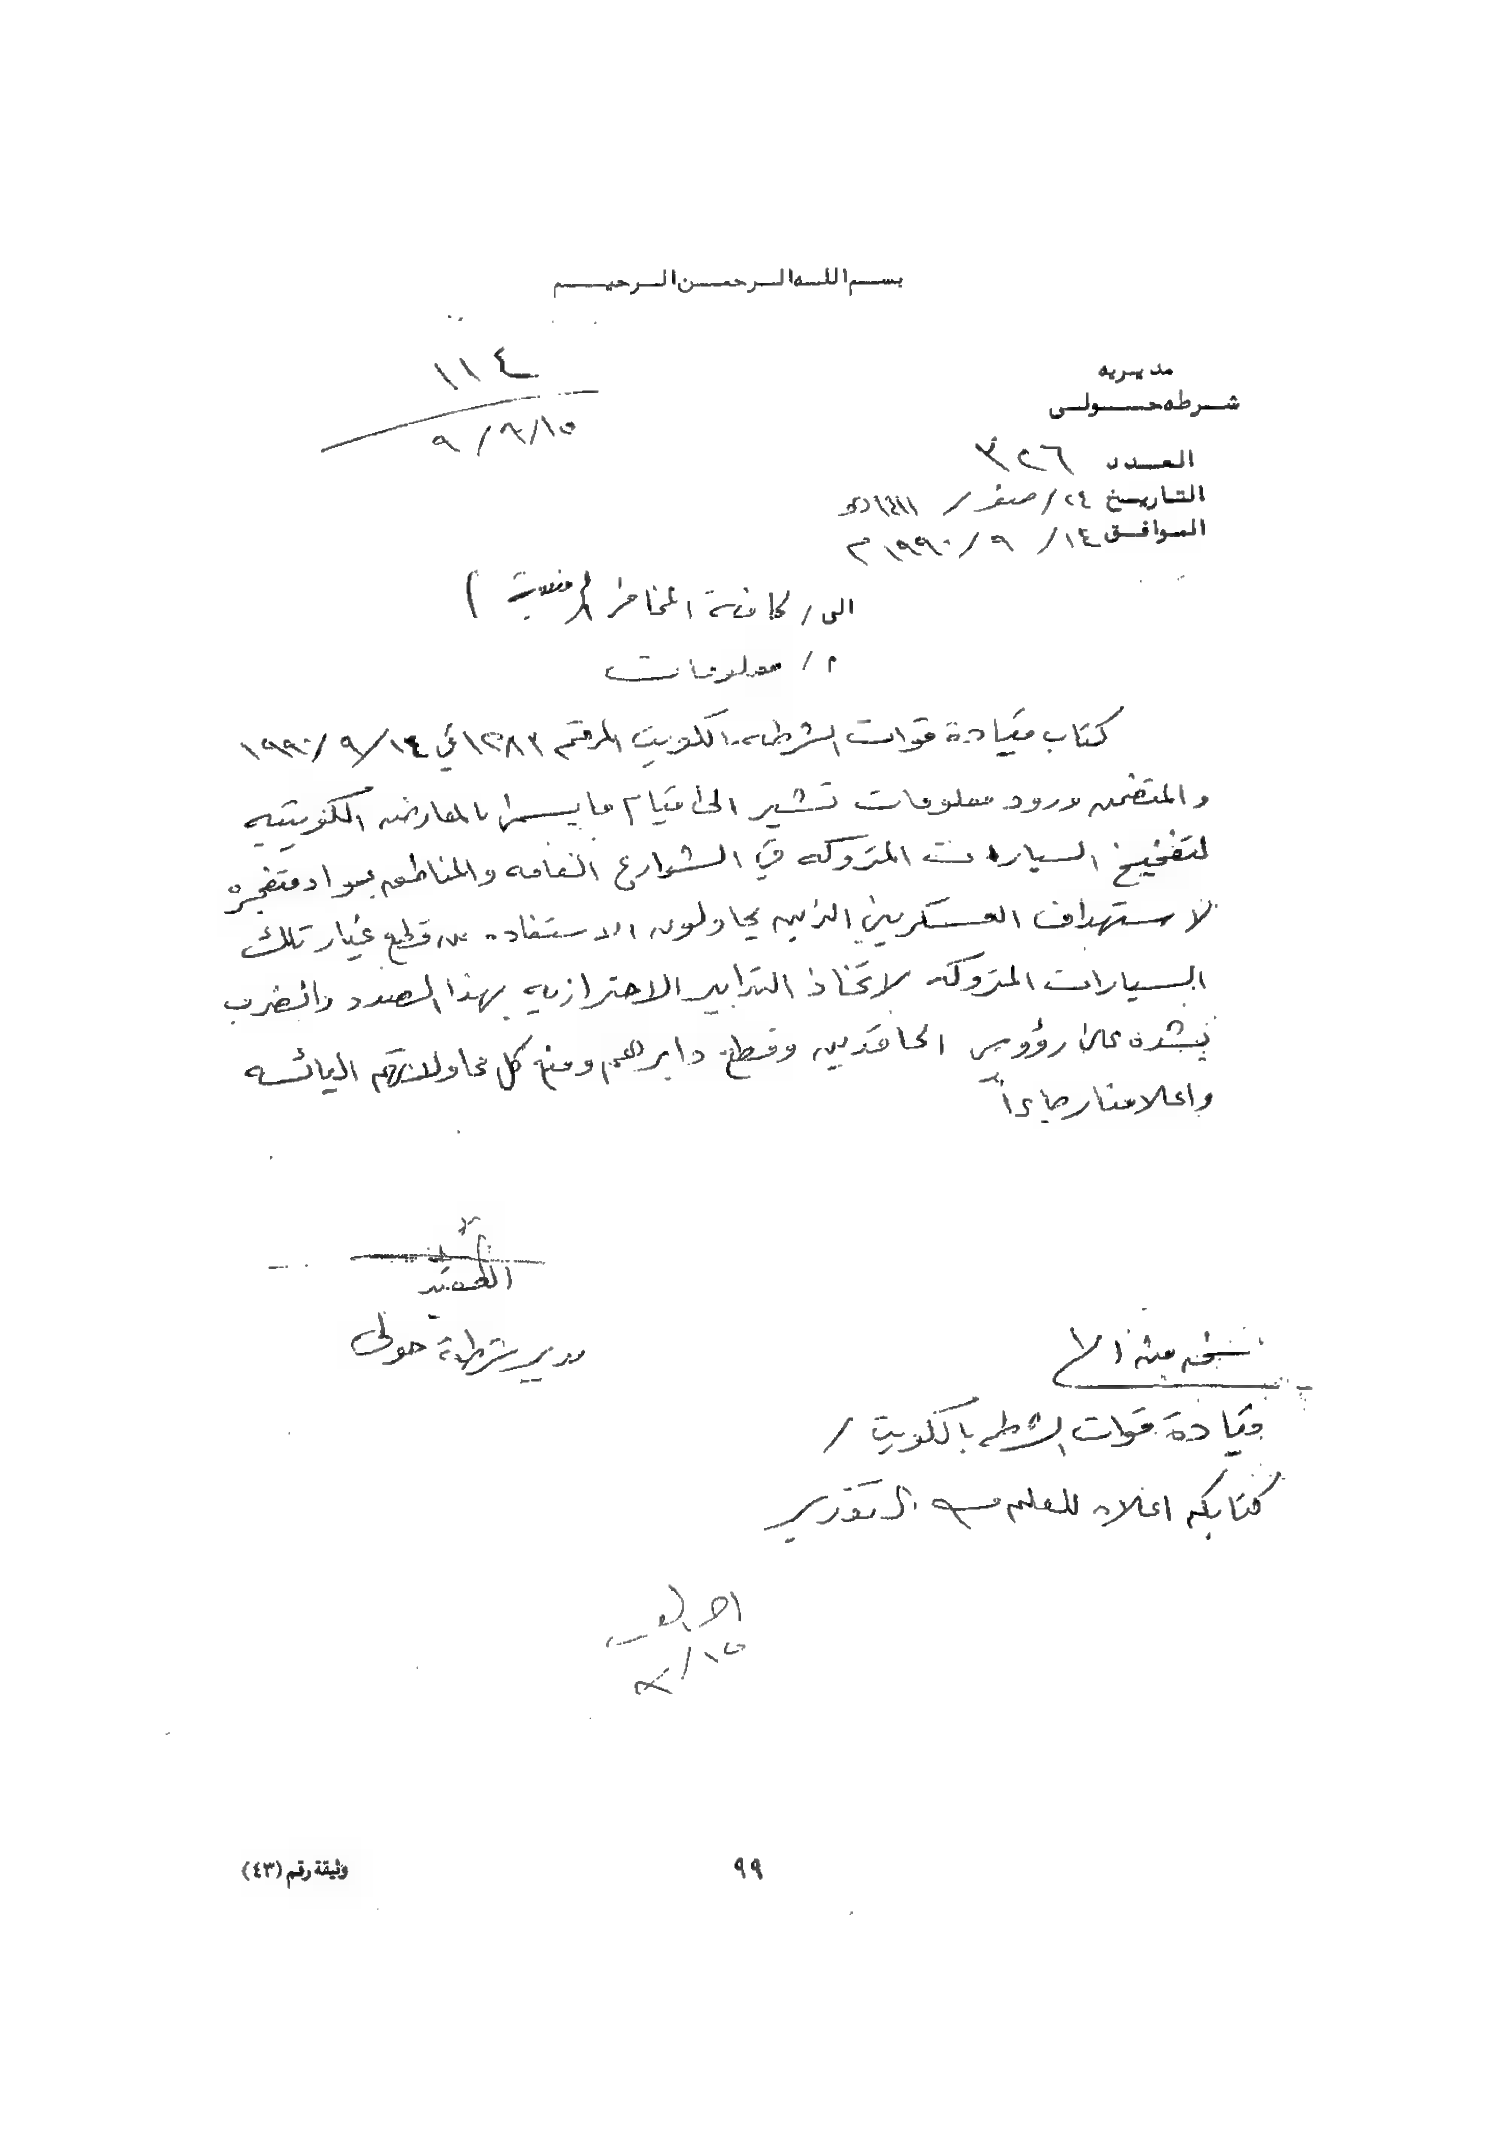 بسم الله الرحمن الرحيم
١١٤
٩/٩/١٥
مديريه
شرطه حولي
العدد ٣٢٦
التاريخ ٢٤/صفر/١٤١١
الموافق ١٤/٩/١٩٩٠م
الى/كافة المخافر
م/معلومات
كتاب قيادة قوات الشرطه الكويت المرقم ١٢٨٣ في ١٤/٩/١٩٩٠
والمتضمن ورود معلومات تشير الى قيام ما يسمى بالمعارضه الكويتيه
لتفخيخ السيارات المتروكه في الشوارع العامه والمناطق بمواد متفجره
لاستهداف العسكريين الذين يحاولون الاستفاده من قطع غيار تلك
السيارات المتروكه لاتخاذ التدابير الاحترازيه بهذا الصدد والضرب
بشده على رؤوس الحاقدين وقطع دابرهم ومنع كل محاولاتهم اليائسه
واعلامنا رجاءاً
العقيد
مدير شرطة حولي
نسخه منه الى
قيادة قوات الشرطه بالكويت/
كتابكم اعلاه للعلم مع التقدير
٩/١٥
٩٩
وثيقة رقم (٤٣)